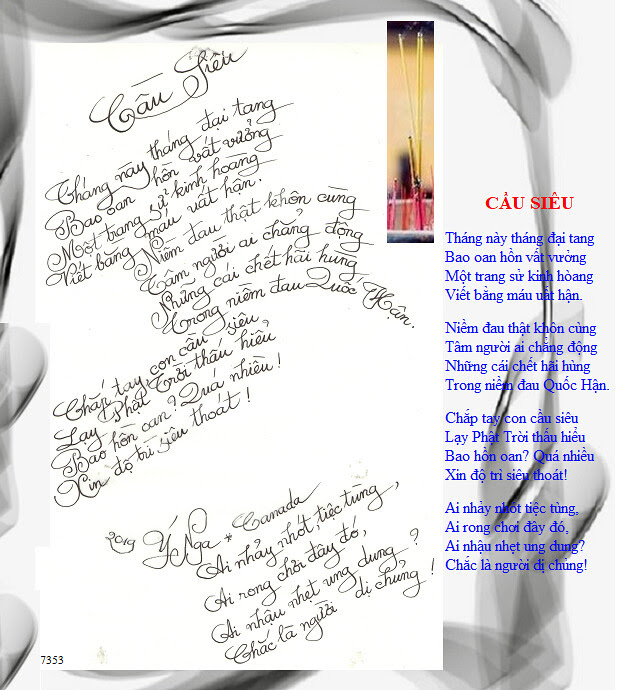 Cầu Siêu
Tháng này tháng đại tang
Bao oan hồn vất vưởng
Một trang sử kinh hoàng
Viết bằng máu uất hận.
Niềm đau thật khôn cùng
Tâm người ai chẳng động
Những cái chết hãi hùng
Trong niềm đau Quốc Hận.
Chắp tay con cầu siêu
Lạy Phật Trời thấu hiểu
Bao hồn oan? Quá nhiều!
Xin độ trì siêu thoát!
2019 Ý Nga * Canada
Ai nhảy nhót, tiệc tùng,
Ai rong chơi đây đó,
Ai nhậu nhẹt ung dung?
Chắc là người dị chủng!
7353
CẦU SIÊU
Tháng này tháng đại tang
Bao oan hồn vất vưởng
Một trang sử kinh hòang
Viết bằng máu uất hận.
Niềm đau thật khôn cùng
Tâm người ai chẳng động
Những cái chết hãi hùng
Trong niềm đau Quốc Hận.
Chắp tay con cầu siêu
Lạy Phật Trời thấu hiểu
Bao hồn oan? Quá nhiều
Xin độ trì siêu thoát!
Ai nhảy nhót tiệc tùng,
Ai rong chơi đây đó,
Ai nhậu nhẹt ung dung?
Chắc là người dị chủng!